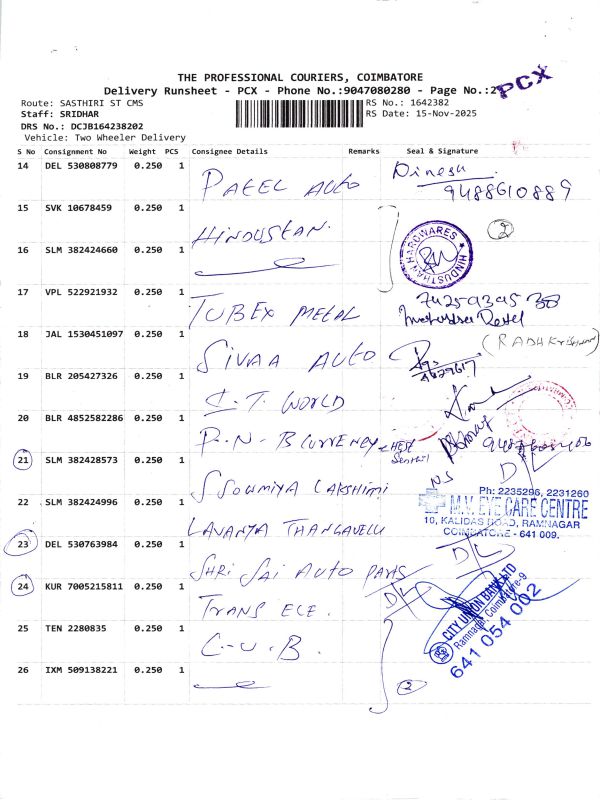 THE PROFESSIONAL COURIERS, COIMBATORE
Delivery Runsheet - PCX - Phone No.:9047080280 - Page No.:2
PCX
Route: SASTHIRI ST CMS
RS No.: 1642382
Staff: SRIDHAR
RS Date: 15-Nov-2025
DRS No.: DCJB164238202
Vehicle: Two Wheeler Delivery
S No Consignment No Weight PCS Consignee Details Remarks Seal & Signature
14 DEL 530808779 0.250 1 PATEL AUTO Dinesh
9488610889
15 SVK 10678459 0.250 1 HINDUSTAN. 2
16 SLM 382424660 0.250 1
HINDUSTHAN HARDWARES
17 VPL 522921932 0.250 1 TUBEX METAL
18 JAL 1530451097 0.250 1 SIVAA AUTO
19 BLR 205427326 0.250 1 I.T. WORLD
20 BLR 4852582286 0.250 1 R.N.B CURRENCY
21 SLM 382428573 0.250 1 SSOWMIYA LAKSHIMI DL
NS
Ph: 2235296, 2231260
M.V. EYE CARE CENTRE
10, KALIDAS ROAD, RAMNAGAR
COIMBATORE - 641 009.
22 SLM 382424996 0.250 1 LAVANYA THANGAVELU
23 DEL 530763984 0.250 1 SHRI SAI AUTO PARTS DL
24 KUR 7005215811 0.250 1 TRANS ELE. DL
CITY UNION BANK LTD
Ramnagar, Coimbatore-9
641 054 002
25 TEN 2280835 0.250 1 C.U.B.
26 IXM 509138221 0.250 1 2